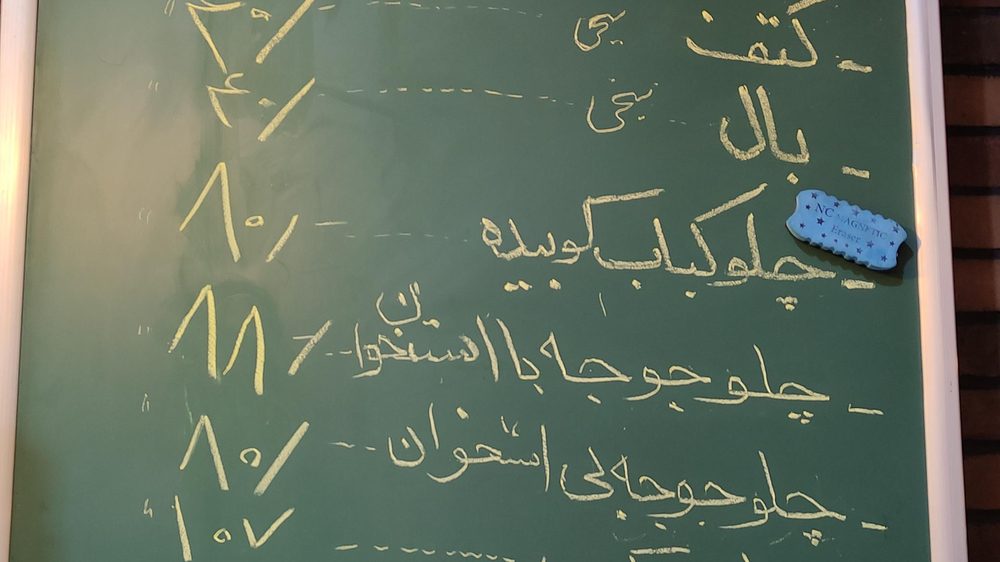 - کتف سیخی
- بال سیخی ۴۰/
- چلو کباب کوبیده ۸۰/
- چلو جوجه با استخوان ۸۸/
- چلو جوجه بی استخوان ۸۰/
۱۰۷
NC MAGNETIC
Eraser